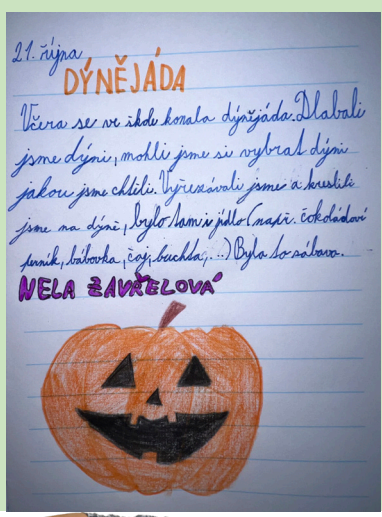 21. října
DÝNĚJÁDA
Včera se ve škole konala dýnějáda. Dlabali
jsme dýni, mohli jsme si vybrat dýni
jakou jsme chtěli. Vyřezávali jsme a kreslili
jsme na dýně, bylo tam i jídlo (např. čokoládoví
perník, bábovka, čaj, buchta, ...) Byla to zábava.
NELA ZAVŘELOVÁ